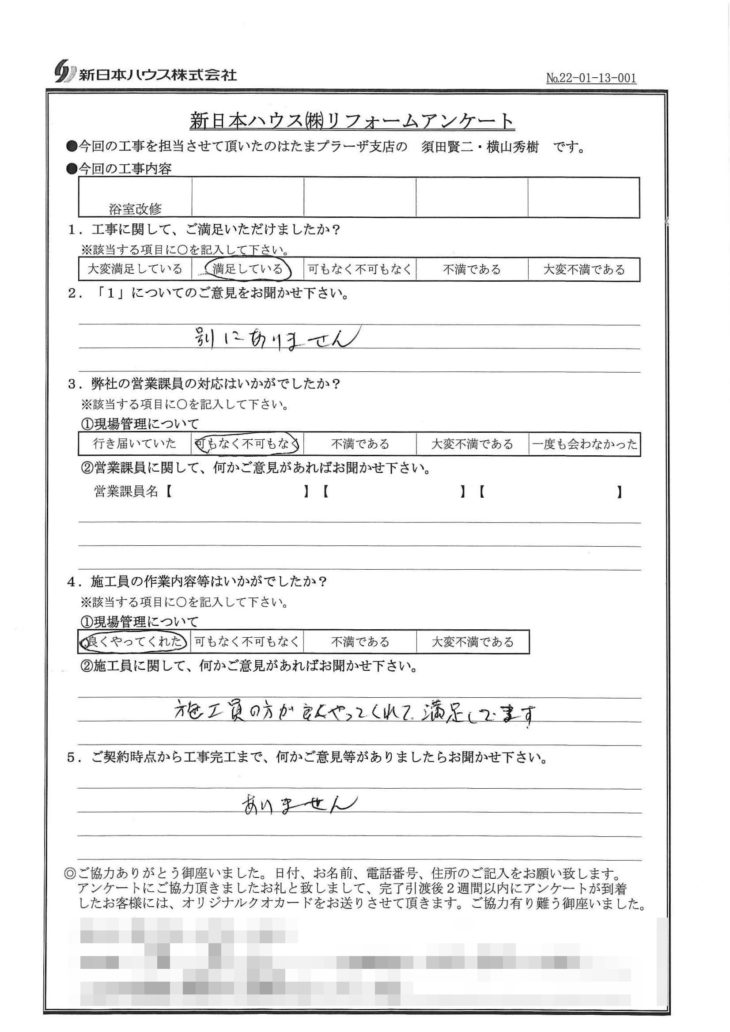 新日本ハウス株式会社
№22-01-13-001
新日本ハウス㈱リフォームアンケート
●今回の工事を担当させて頂いたのはたまプラーザ支店の 須田賢二・横山秀樹 です。
●今回の工事内容
浴室改修
1．工事に関して、ご満足いただけましたか？
※該当する項目に○を記入して下さい。
大変満足している 満足している 可もなく不可もなく 不満である 大変不満である
2．「1」についてのご意見をお聞かせ下さい。
別にありません
3．弊社の営業課員の対応はいかがでしたか？
※該当する項目に○を記入して下さい。
①現場管理について
行き届いていた 可もなく不可もなく 不満である 大変不満である 一度も会わなかった
②営業課員に関して、何かご意見があればお聞かせ下さい。
営業課員名【 】【 】【 】
4．施工員の作業内容等はいかがでしたか？
※該当する項目に○を記入して下さい。
①現場管理について
良くやってくれた 可もなく不可もなく 不満である 大変不満である
②施工員に関して、何かご意見があればお聞かせ下さい。
施工員の方が やってくれて、満足してます
5．ご契約時点から工事完工まで、何かご意見等がありましたらお聞かせ下さい。
ありません
◎ご協力ありがとう御座いました。日付、お名前、電話番号、住所のご記入をお願い致します。
アンケートにご協力頂きましたお礼と致しまして、完了引渡後２週間以内にアンケートが到着
したお客様には、オリジナルクオカードをお送りさせて頂きます。ご協力有り難う御座いました。